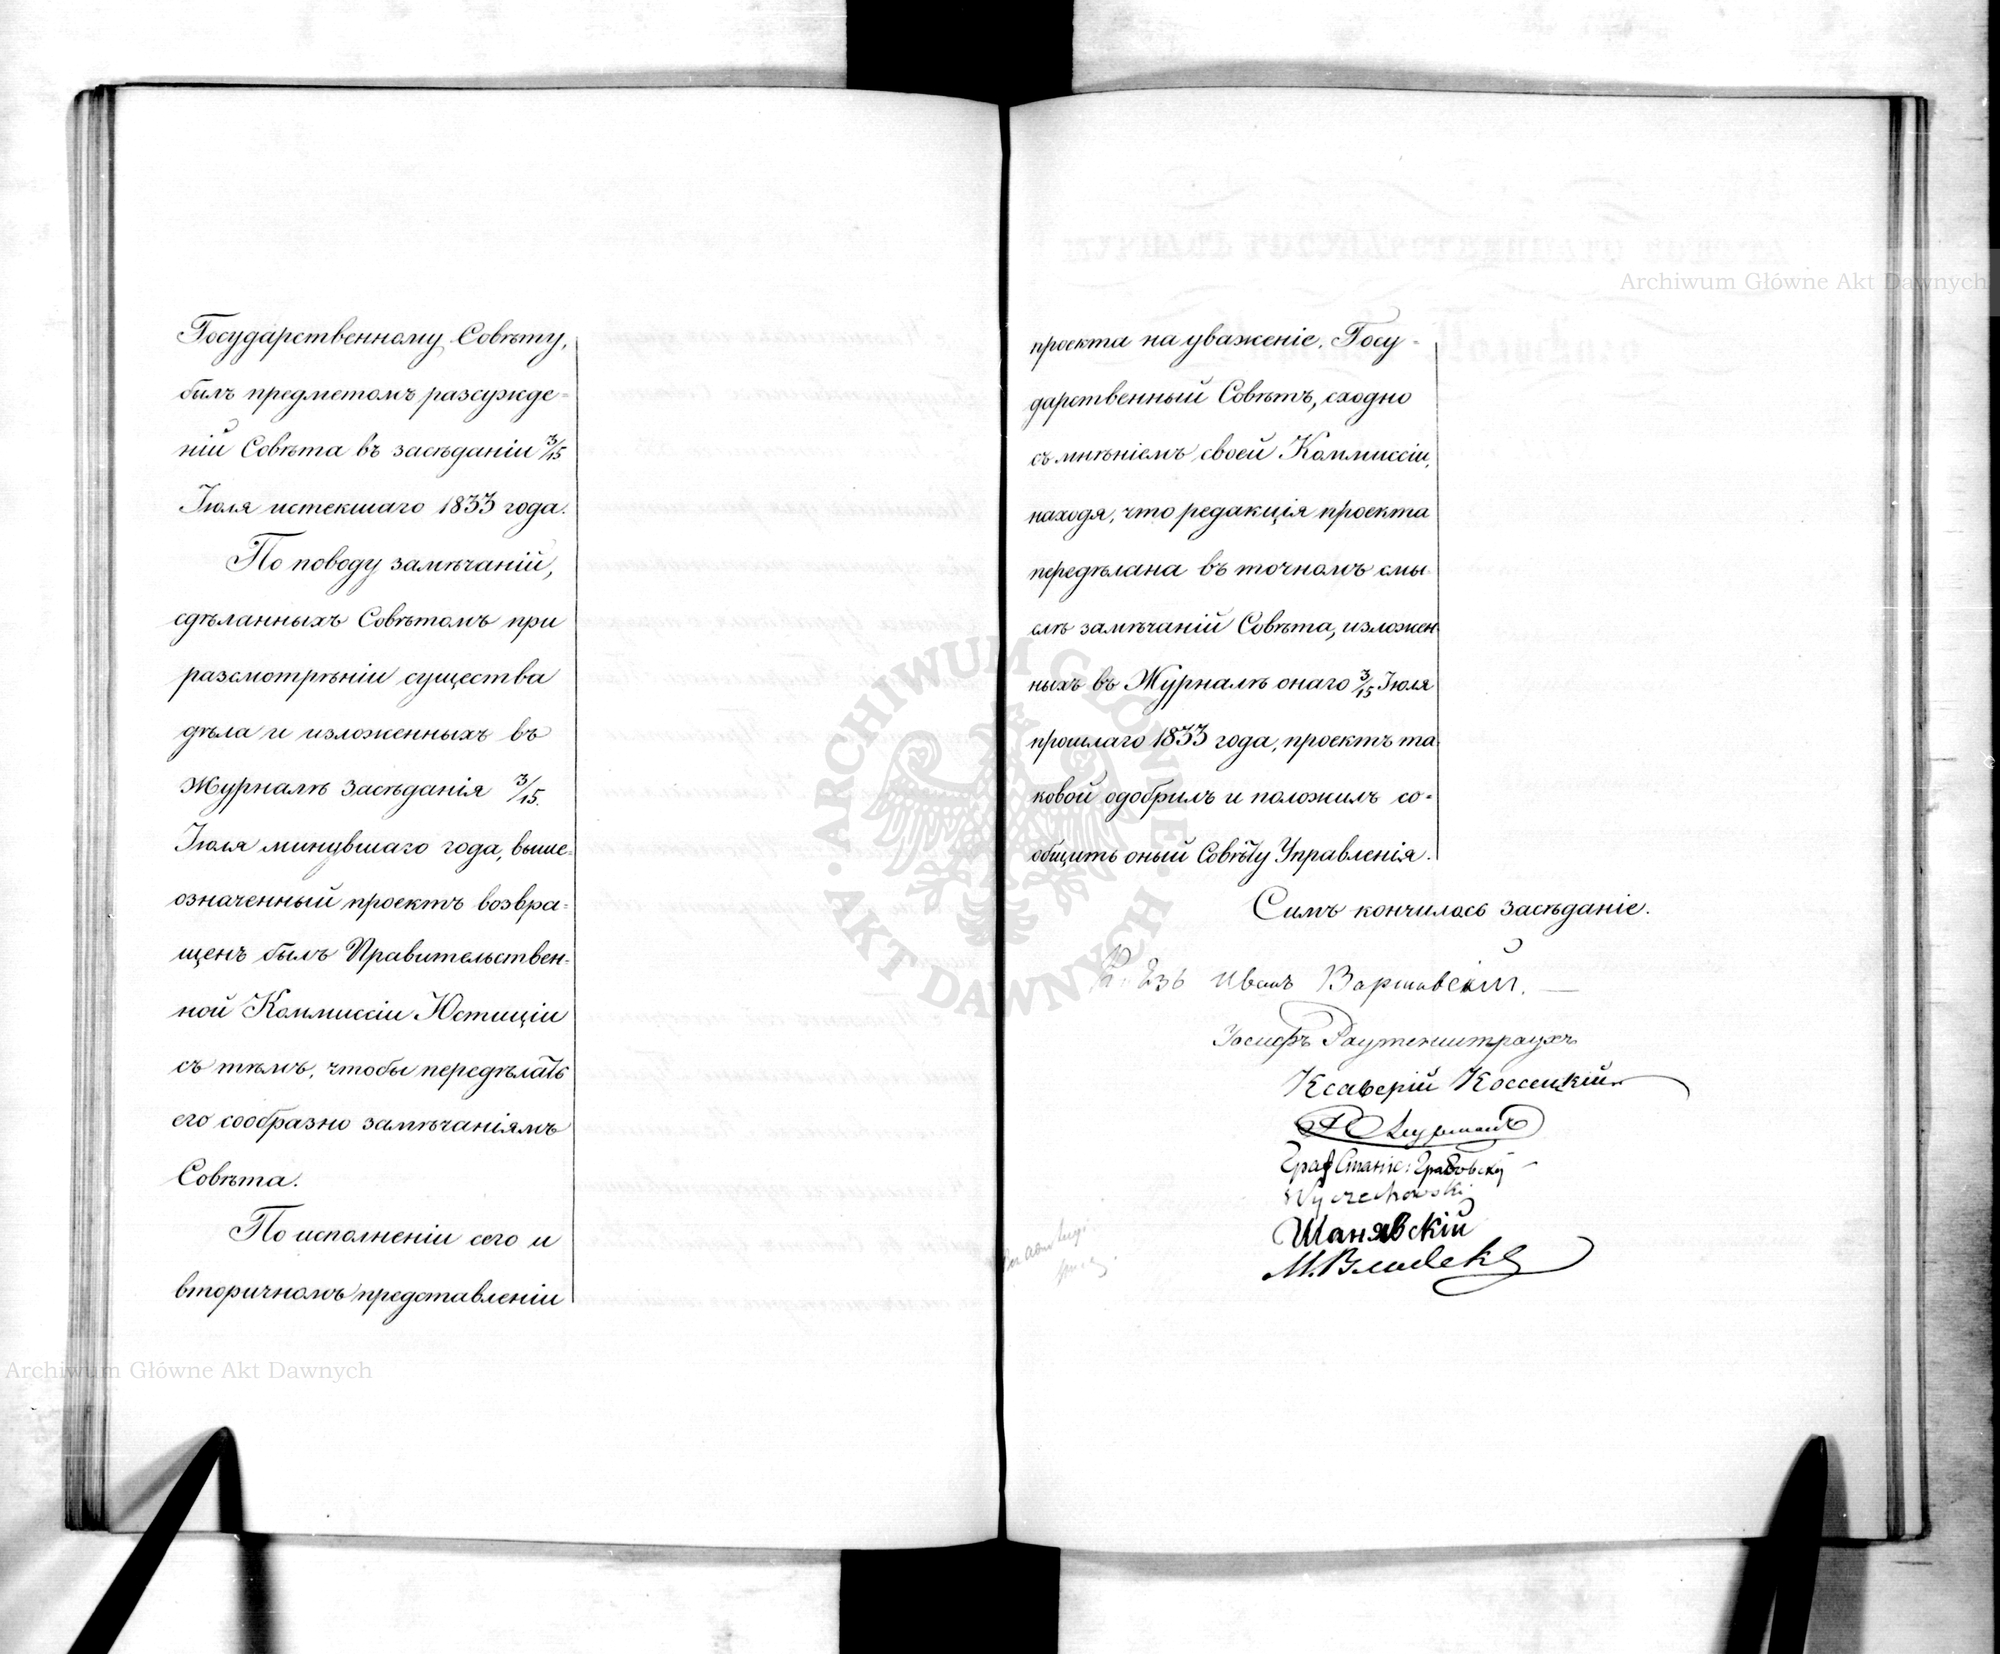 Государственному Совѣту,
былъ предметомъ разсужде=
ній Совѣта въ засѣданіи 3/15
Іюля истекшаго 1833 года.
По поводу замѣчаній,
сдѣланныхъ Совѣтомъ при
разсмотрѣніи существа
дѣла и изложенныхъ въ
Журналѣ Засѣданія 3/15.
Іюля минувшаго года, выше=
означенный проектъ возвра=
щенъ былъ Правительствен=
ной Коммиссіи Юстиціи
съ тѣмъ, чтобы передѣлать
его сообразно замѣчаніямъ
Совѣта.
По исполненіи сего и
вторичномъ представленіи
проекта на уваженіе, Госу=
дарственный Совѣтъ, сходно
съ мнѣніемъ своей Коммиссіи,
находя, что редакція проекта
передѣлана въ точномъ смы
слѣ замѣчаній Совѣта, изложен
ныхъ въ Журналѣ онаго 3/15 Іюля
прошлаго 1833 года, проектъ та
ковой одобрилъ и положилъ со=
общить оный Совѣту Управленія.
Симъ кончилось засѣданіе.
Князь Иванъ Варшавскій.
Іосифъ Раутенштраухъ
Ксаверій Коссецкій
Фурманъ
Граф Станис: Грабовскій
Wyczechowski
Шанявскій
Archiwum Główne Akt Dawnych
Archiwum Główne Akt Dawnych
ARCHIWUM GŁÓWNE AKT DAWNYCH